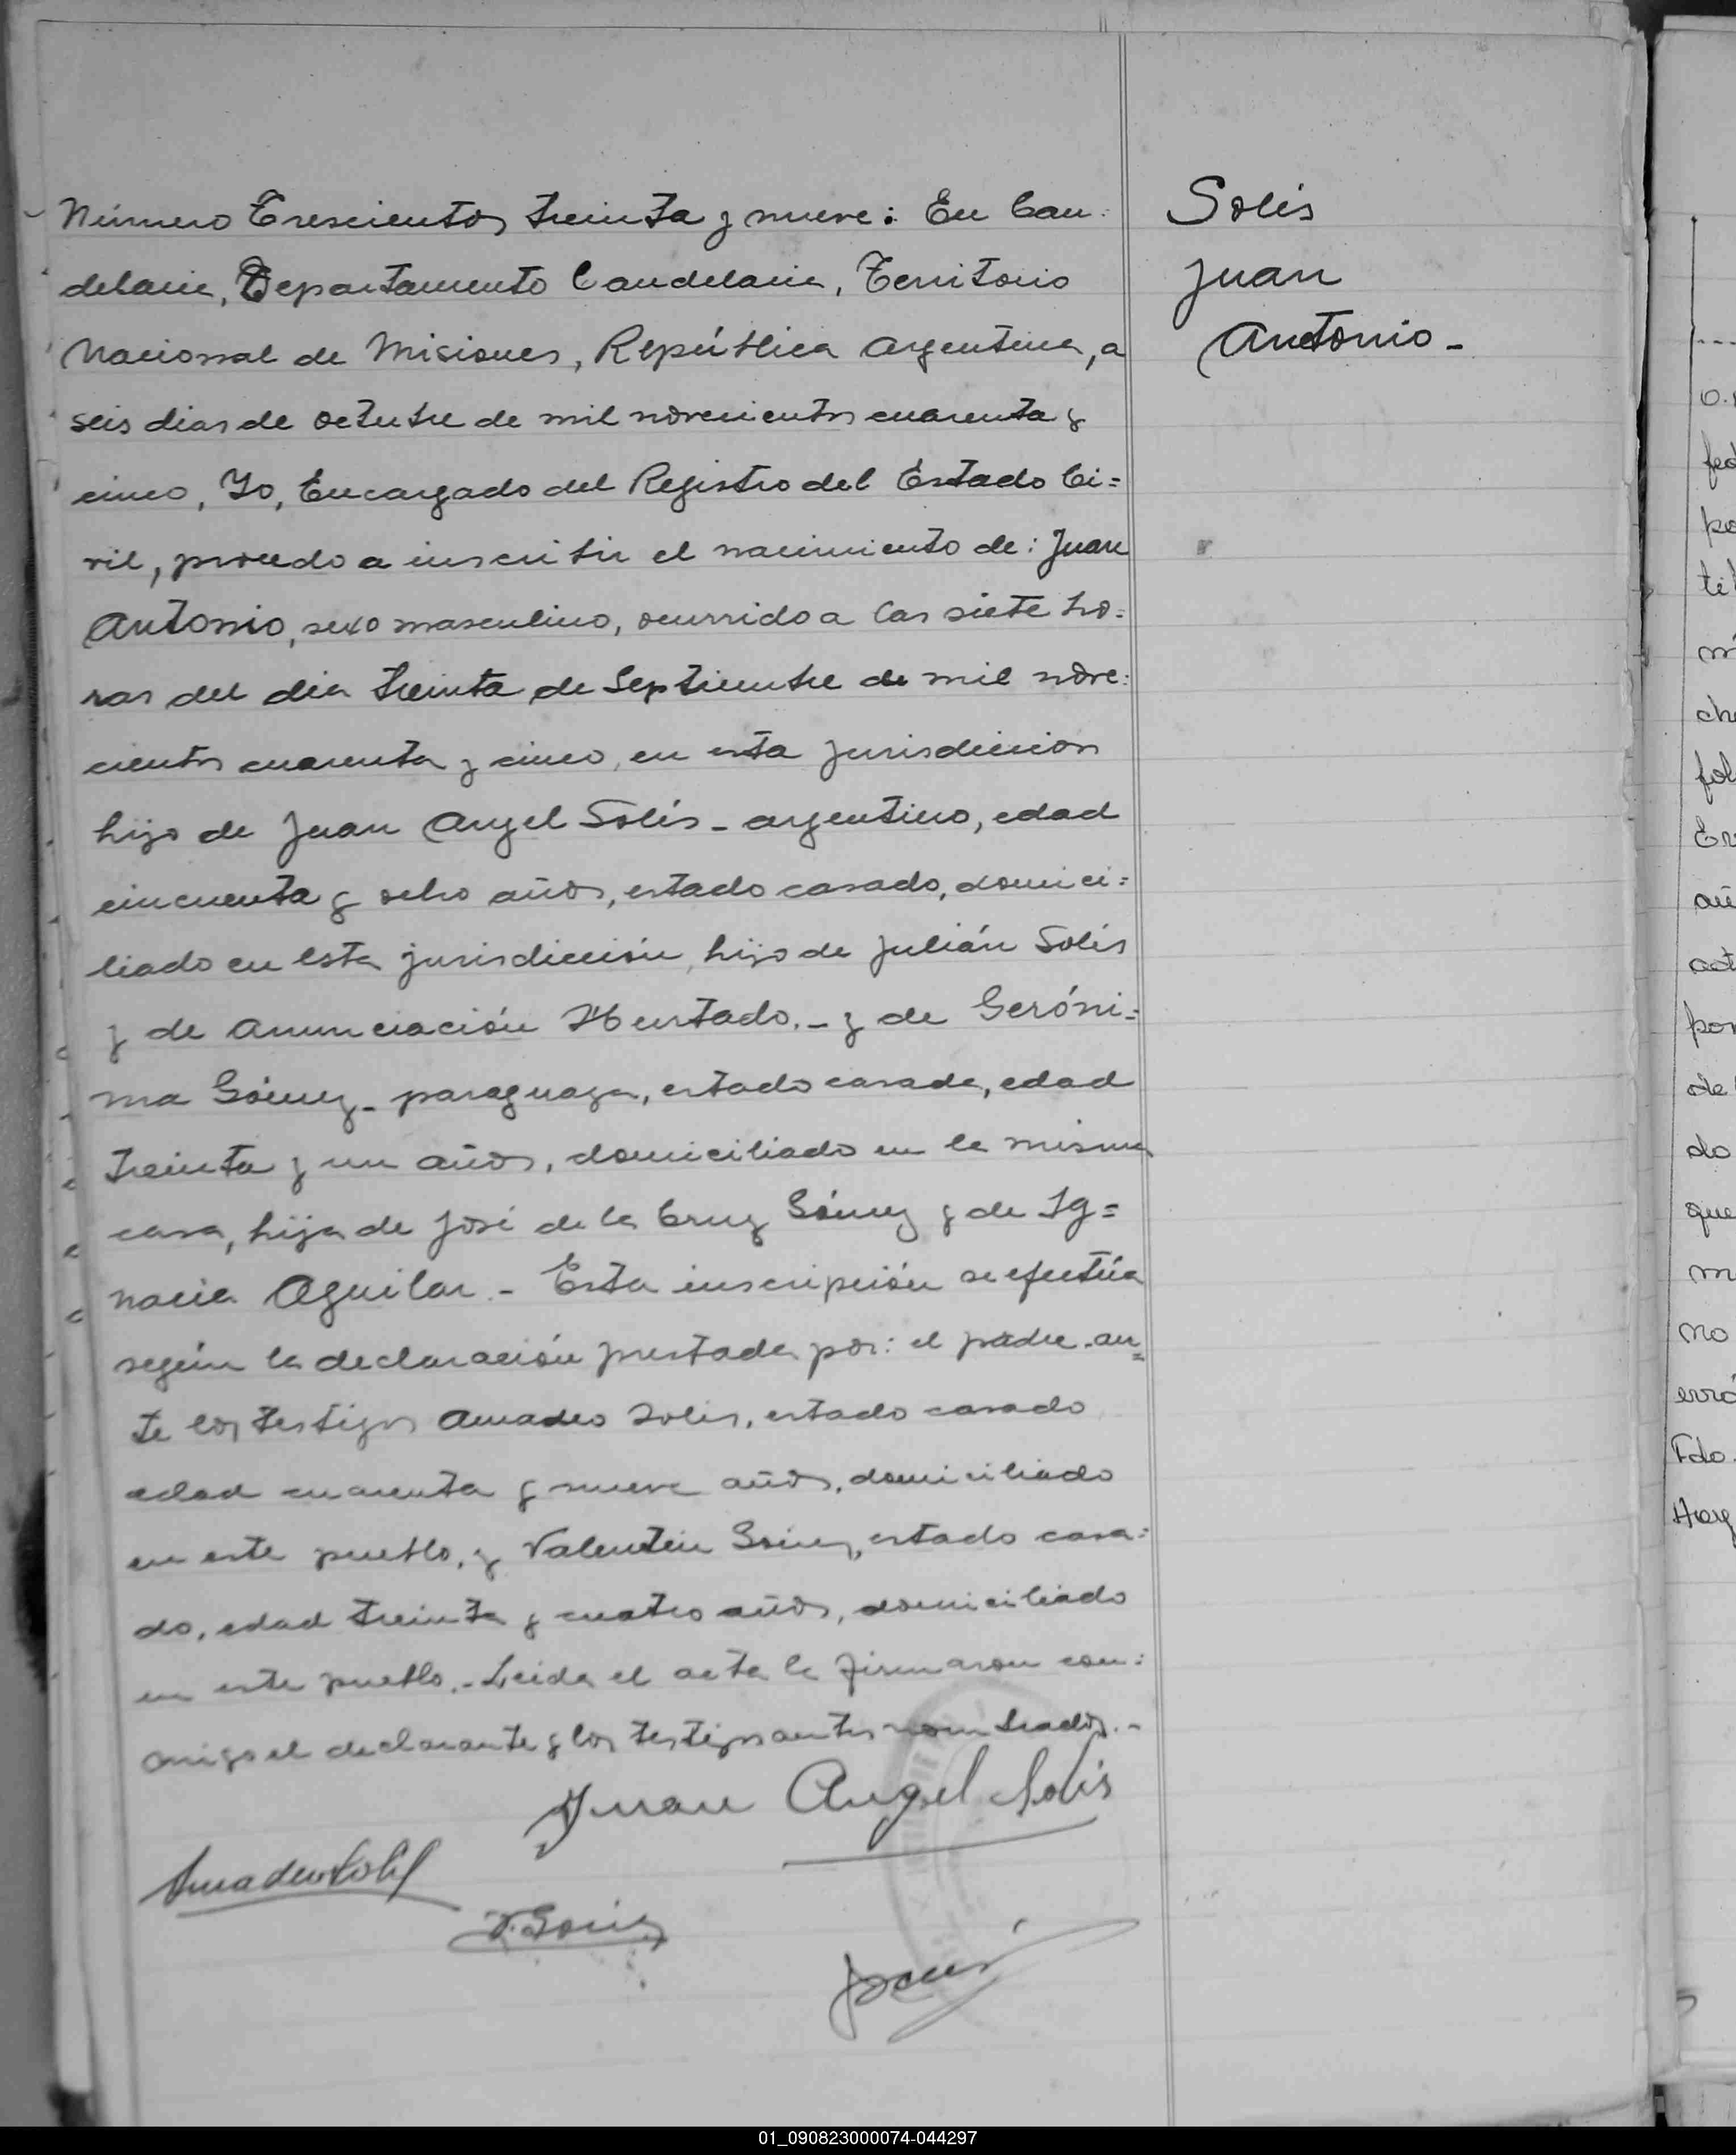 Número Trescientos treinta y nueve: En Can=
delaria, Departamento Candelaria, Territorio
Nacional de Misiones, República Argentina, a
seis dias de octubre de mil novecientos cuarenta y
cinco, Yo, Encargado del Registro del Estado Ci=
vil, procedo a inscribir el nacimiento de: Juan
Antonio, sexo masculino, ocurrido a las siete ho=
ras del dia treinta de Septiembre de mil nove=
cientos cuarenta y cinco, en esta jurisdiccion
hijo de Juan Angel Solís - argentino, edad
cincuenta y ocho años, estado casado, domici=
liado en esta jurisdicción, hijo de Julián Solís
y de Anunciación Hurtado. - y de Geróni=
ma Gómez - paraguaya, estado casada, edad
treinta y un años, domiciliado en la misma
casa, hija de José de la Cruz Gómez y de Ig=
nacia Aguilar. - Esta inscripción se efectúa
según la declaración prestada por: el padre - an=
te los testigos Amadeo Solis, estado casado
edad cuarenta y nueve años, domiciliado
en este pueblo, y Valentín Gómez, estado casa=
do, edad treinta y cuatro años, domiciliado
en este pueblo. - Leida el acta la firmaron con=
migo el declarante y los testigos antes nombrados. -
Juan Angel Solis
Amadeo Solis
V. Gómez
Solís
Juan
Antonio -
01_090823000074-044297